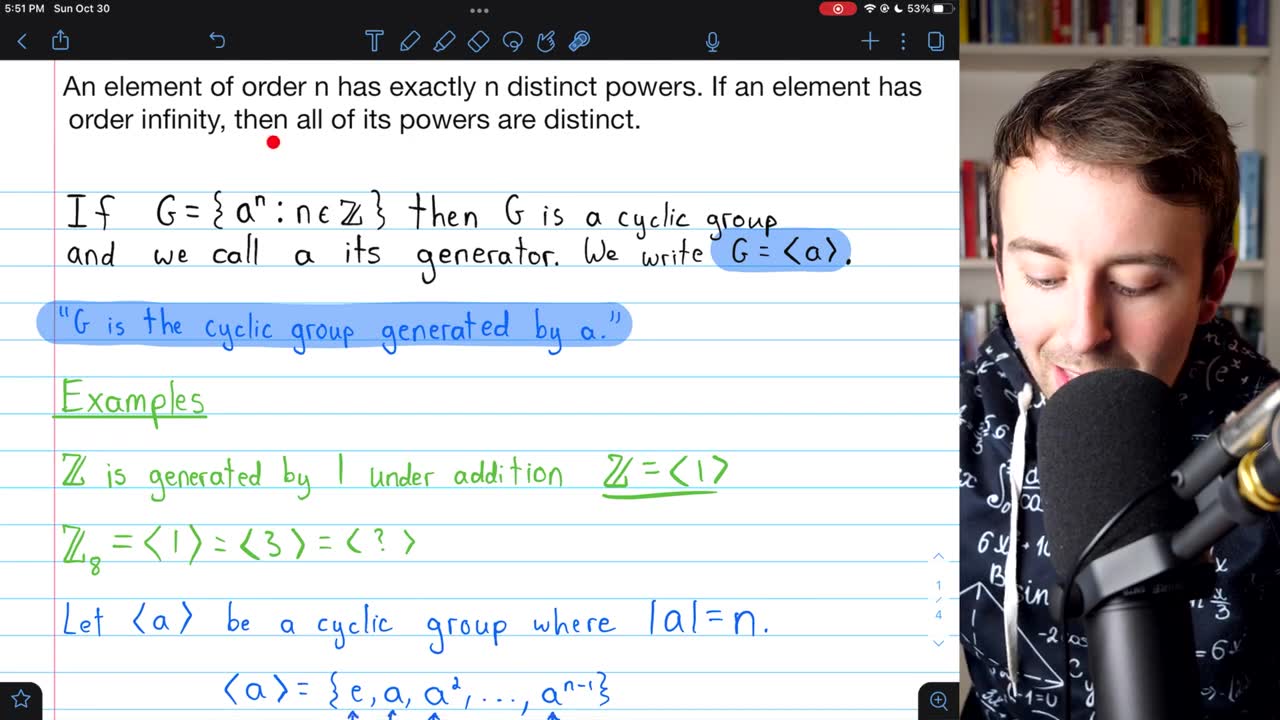 5:51 PM Sun Oct 30
53%
An element of order n has exactly n distinct powers. If an element has
order infinity, then all of its powers are distinct.
If G = { aⁿ : n ∈ ℤ } then G is a cyclic group
and we call a its generator. We write G = ⟨a⟩.
"G is the cyclic group generated by a."
Examples
ℤ is generated by 1 under addition ℤ = ⟨1⟩
ℤ₈ = ⟨1⟩ = ⟨3⟩ = ⟨?⟩
1
4
Let ⟨a⟩ be a cyclic group where |a| = n.
⟨a⟩ = {e, a, a², ..., aⁿ⁻¹}